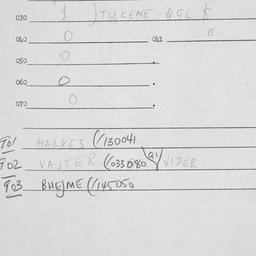 030 $ ) TUKENE QGL $
040 0 041 0
050 0 .
060 0 .
070 0 .
901 HALKES (/130041
902 VAJTER (/033080 Q1 VIDER
903 BHEJME (/145050